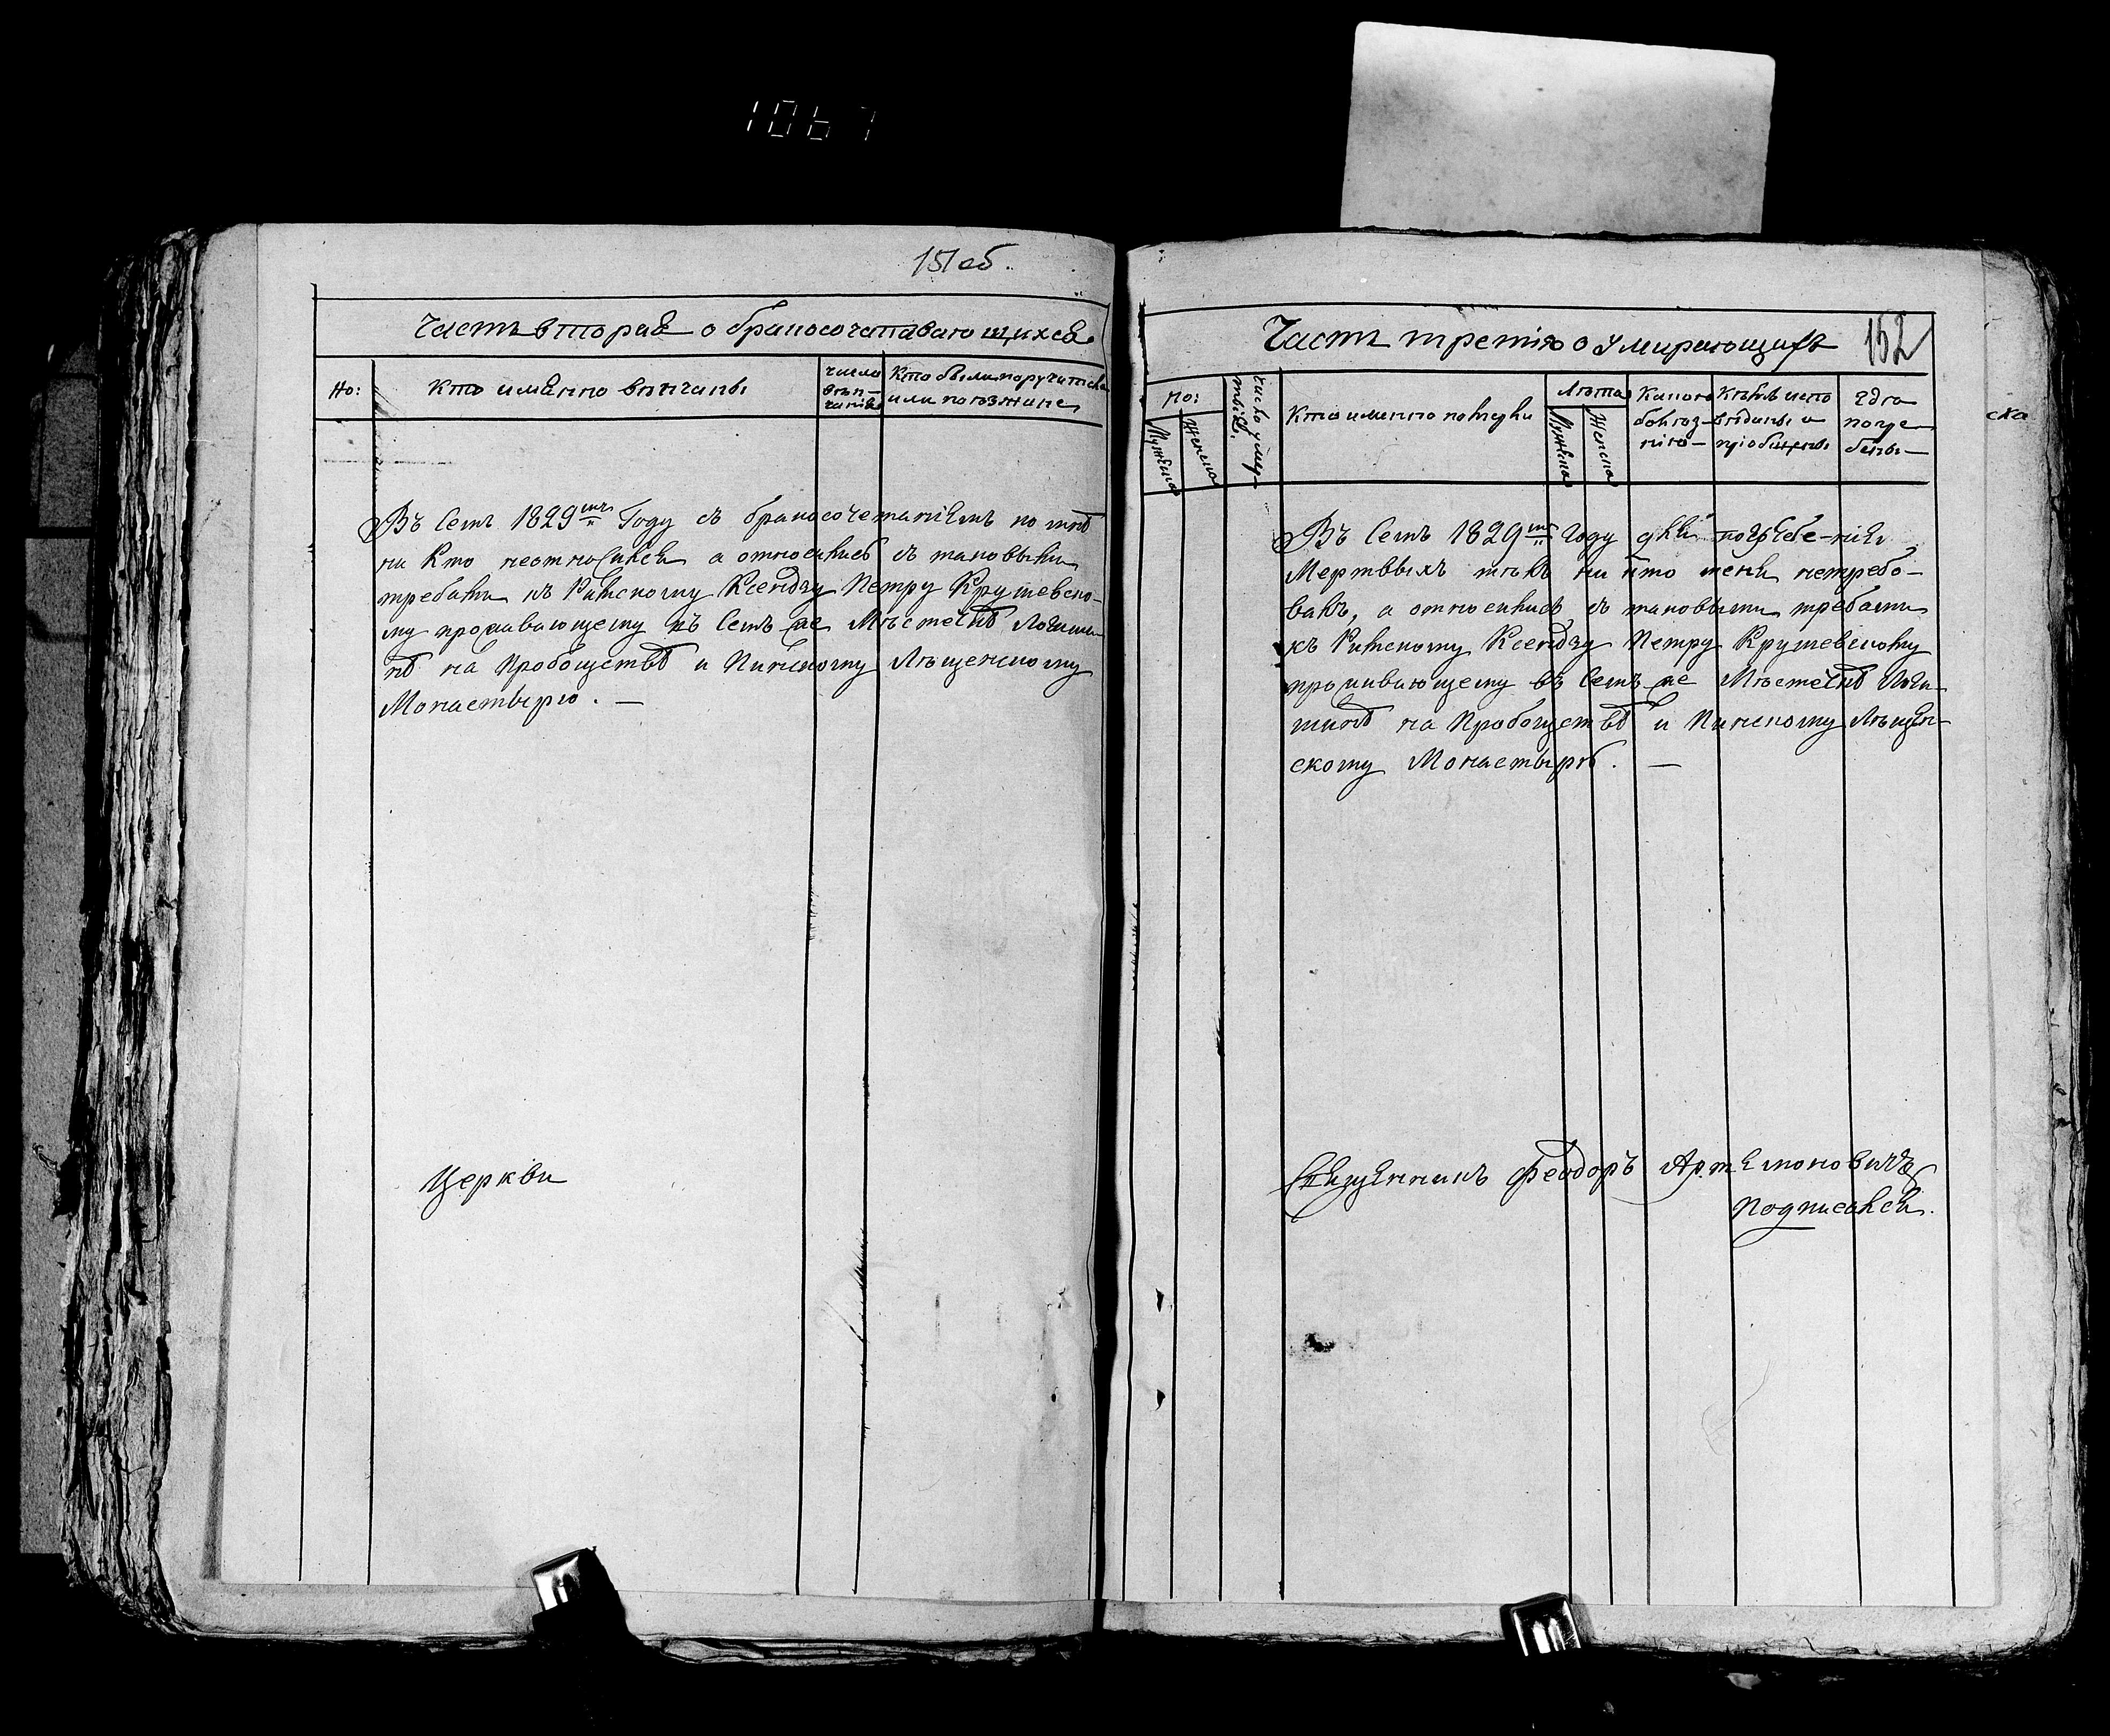 1067
151 об.
Часть вторая о бракосочетавающихся
Но:
Кто имянно вѣнчаны
число
вѣн-
чанія
Кто были поручители
или поезжане
Въ семъ 1829мъ Году съ бракосочетаніемъ ко мнѣ
ни кто неотносился а относились съ таковыми
требами къ Римскому Ксендзу Петру Крушевско-
му проживающему въ семъ же Мѣстечкѣ Логиши-
нѣ на Пробоществѣ и Пинскому Лѣщенскому
Монастырю. —
Церкви
Часть третія о умирающихъ
152
Но:
Мужеска
Женска
число умер-
твія.
Кто именно померли
Лѣта
Мужеска
Женска
Какою
болѣз-
нію —
Кѣмъ испо
вѣданы и
пріобщены
Гдѣ
погре-
бены —
ска
Въ семъ 1829мъ Году для погребе-нія
Мертвыхъ тѣлъ ни кто меня нетребо-
валъ, а относились съ таковыми требами
къ Римскому Ксендзу Петру Крушевскому
проживающему въ семъ же Мѣстечкѣ Логи-
шинѣ на Пробоществѣ и Пинскому Лѣщен-
скому Монастырю. —
Священникъ Феодоръ Артемоновичъ
подписался.